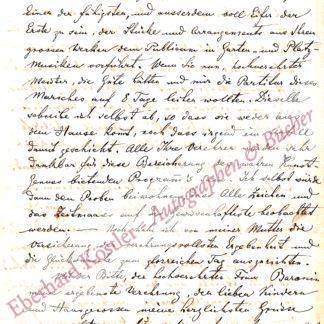 einer der fähigsten, und ausserdem voll Eifer der
Erste zu sein, der Stücke und Arrangements aus Ihren
grossen Werken dem Publicum in Garten- und Platz-
Musiken vorführt. Wenn Sie nun, hochverehrter
Meister, die Güte hätten und mir die Partitur dieses
Marsches auf 8 Tage leihen wollten. Dieselbe
schreibe ich selbst ab, so dass sie weder aus
dem Hause kommt, noch dass irgend ein
damit geschieht. Alle Ihre Verehrer
dankbar für diese Bereicherung des wahren Kunst-
Genuss bietenden Programms ich selbst würde
dann den Proben beiwohnen Alle Zeichen und
das Zeitmass auf gewissenhafteste beobachtet
werden. — Noch habe ich von meiner Mutter die
Versicherung verehrungsvollster Ergebenheit und
die Glückwünsche zum glorreichen Tag auszurichten.
Bitte, der hochverehrten Frau Baronin
ergebenste Verehrung, den lieben Kindern
und Hausgenossen meine herzlichsten Grüsse
Eberhard Köstler Autographen & Bücher